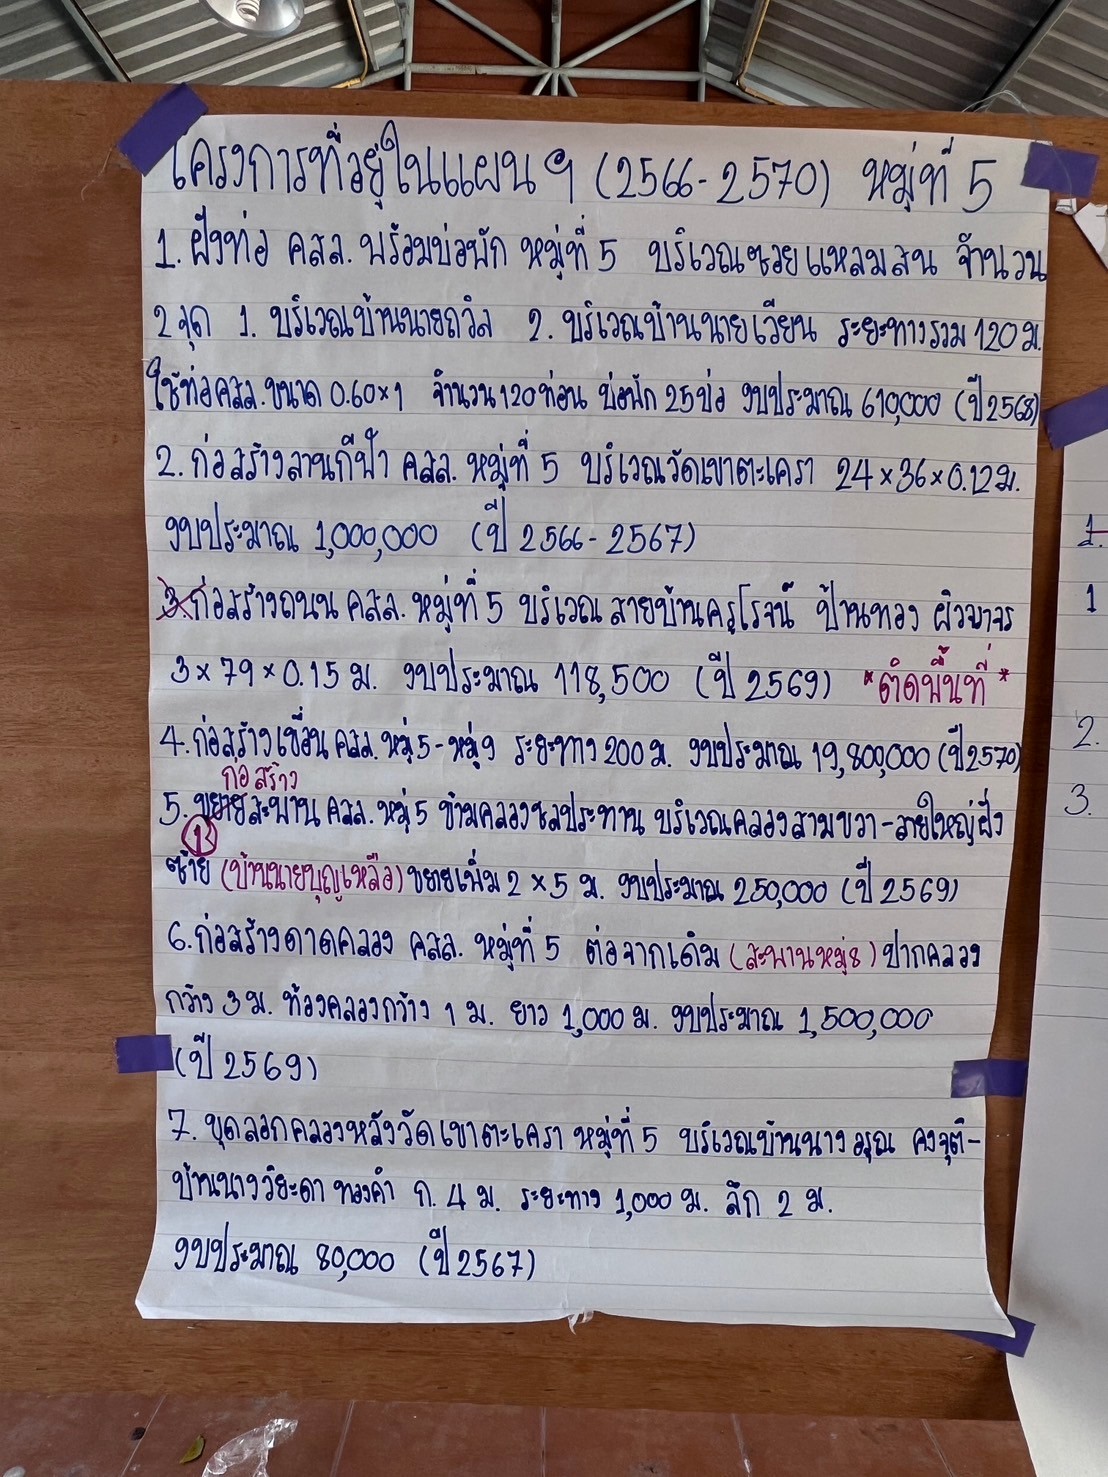 โครงการที่อยู่ในแผนฯ (2566-2570) หมู่ที่ 5
1. ฝังท่อ คสล. พร้อมบ่อพัก หมู่ที่ 5 บริเวณซอยแหลมสน จำนวน
2 จุด 1. บริเวณบ้านนายถวิล 2. บริเวณบ้านนายเวียน ระยะทางรวม 120 ม.
ใช้ท่อคสล. ขนาด 0.60×1 จำนวน 120 ท่อน บ่อพัก 25 บ่อ งบประมาณ 610,000 (ปี 2568)
2. ก่อสร้างลานกีฬา คสล. หมู่ที่ 5 บริเวณวัดเขาตะเครา 24×36×0.12 ม.
งบประมาณ 1,000,000 (ปี 2566-2567)
3. ก่อสร้างถนน คสล. หมู่ที่ 5 บริเวณสายบ้านครูโรจน์ ป้านทอง ผิวจาจร
3×79×0.15 ม. งบประมาณ 118,500 (ปี 2569) *ติดพื้นที่*
4. ก่อสร้างเขื่อน คสล. หมู่ 5 - หมู่ 9 ระยะทาง 200 ม. งบประมาณ 19,800,000 (ปี 2570)
ก่อสร้าง
5. ขยายสะพาน คสล. หมู่ 5 ข้ามคลองชลประทาน บริเวณคลองสามขวา - สายใหญ่ฝั่ง
1
ซ้าย (บ้านนายบุญเหลือ) ขยายเพิ่ม 2×5 ม. งบประมาณ 250,000 (ปี 2569)
6. ก่อสร้างดาดคลอง คสล. หมู่ที่ 5 ต่อจากเดิม (สะพานหมู่ 8) ปากคลอง
กว้าง 3 ม. ท้องคลองกว้าง 1 ม. ยาว 1,000 ม. งบประมาณ 1,500,000
(ปี 2569)
7. ขุดลอกคลองหลังวัดเขาตะเครา หมู่ที่ 5 บริเวณบ้านนางอรุณ คงจุติ -
บ้านนางวิยะดา ทองคำ ก. 4 ม. ระยะทาง 1,000 ม. ลึก 2 ม.
งบประมาณ 80,000 (ปี 2567)
1.
1
2.
3.